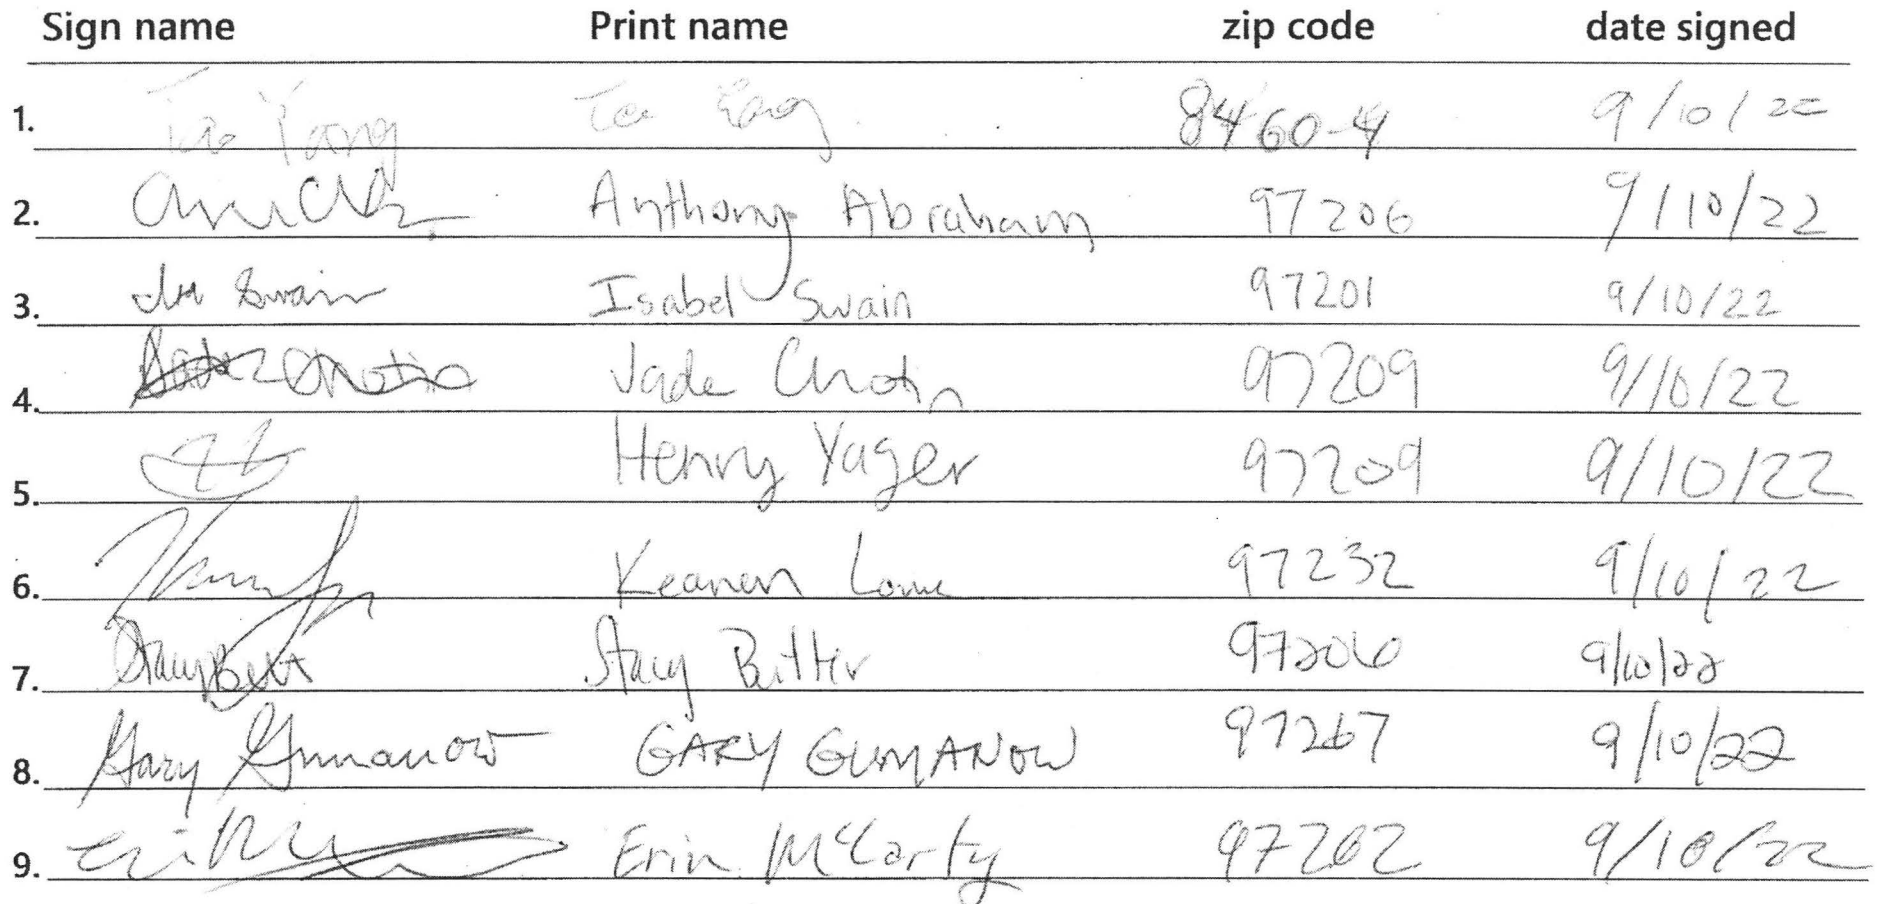 Sign name Print name zip code date signed
1. Tae Yang 84604 9/10/22
2. Anthony Abraham 97206 9/10/22
3. Swain Isabel Swain 97201 9/10/22
4. Jade 97209 9/10/22
5. Henry Yager 97209 9/10/22
6. Keanen 97232 9/10/22
7. Stacy 97206 9/10/22
8. Gary Gumanow GARY GUMANOW 97267 9/10/22
9. Erin McCarty 97202 9/10/22